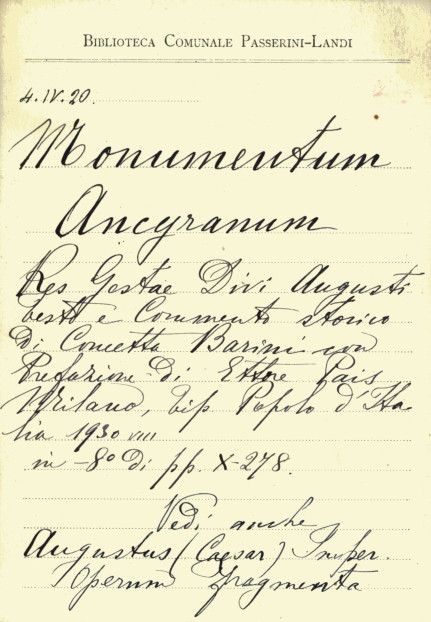 BIBLIOTECA COMUNALE PASSERINI-LANDI
4.IV.20.
Monumentum
Ancyranum
Res Gestae Divi Augusti
testo e Commento storico
Di Concetta Barini con
Prefazione Di Ettore Pais
Milano, tip. Popolo d'Ita
lia 1930 VIII
in -8º Di pp. X-278.
Vedi anche
Augustus (Caesar) Imper.
Operum fragmenta